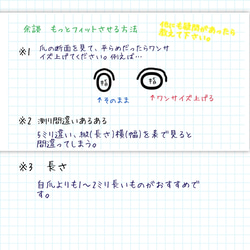 余談 もっとフィットさせる方法
何か疑問があったら
教えて下さい。
※1 爪の断面を見て、平らめだったらワンサ
イズ上げてください。例えば…
幅 幅
↑そのまま ↑ワンサイズ上げる
※2 測り間違いあるある
5ミリ違い、縦(長さ)横(幅)を素で見ると
間違ってしまう。
※3 長さ
自爪よりも1〜2ミリ長いものがおすすめで
す。